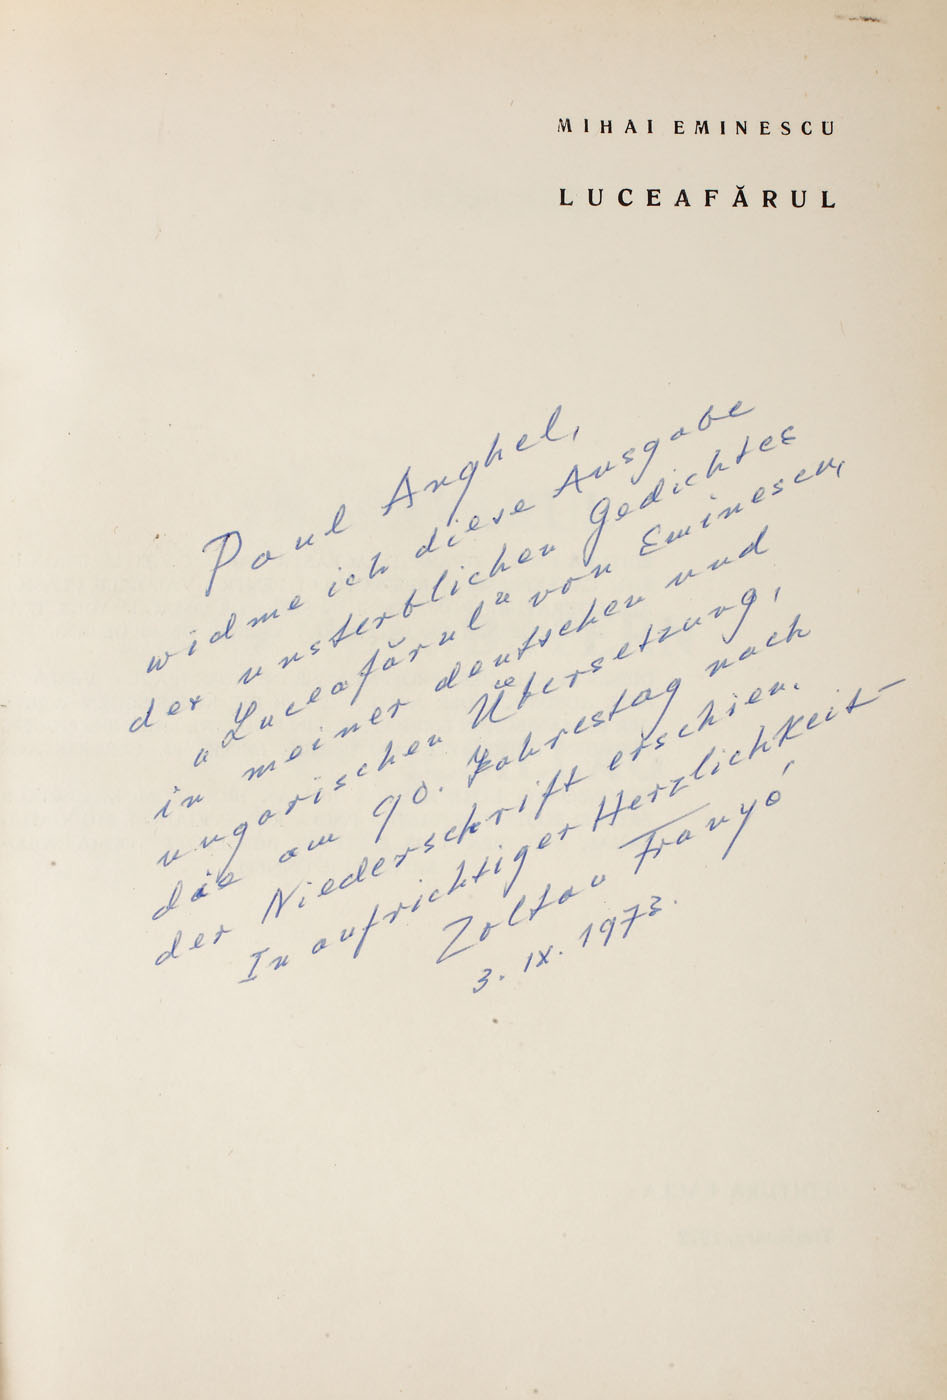 MIHAI EMINESCU
LUCEAFĂRUL
Paul Anghel,
widme ich diese Ausgabe
der unsterblichen Gedichtes
"Luceafărul" von Eminescu,
in meiner deutschen und
ungarischen Übersetzung,
die am 90. Jahrestag nach
der Niederschrift erschien.
In aufrichtiger Herzlichkeit
Zoltan Franyó
3. IX. 1973.